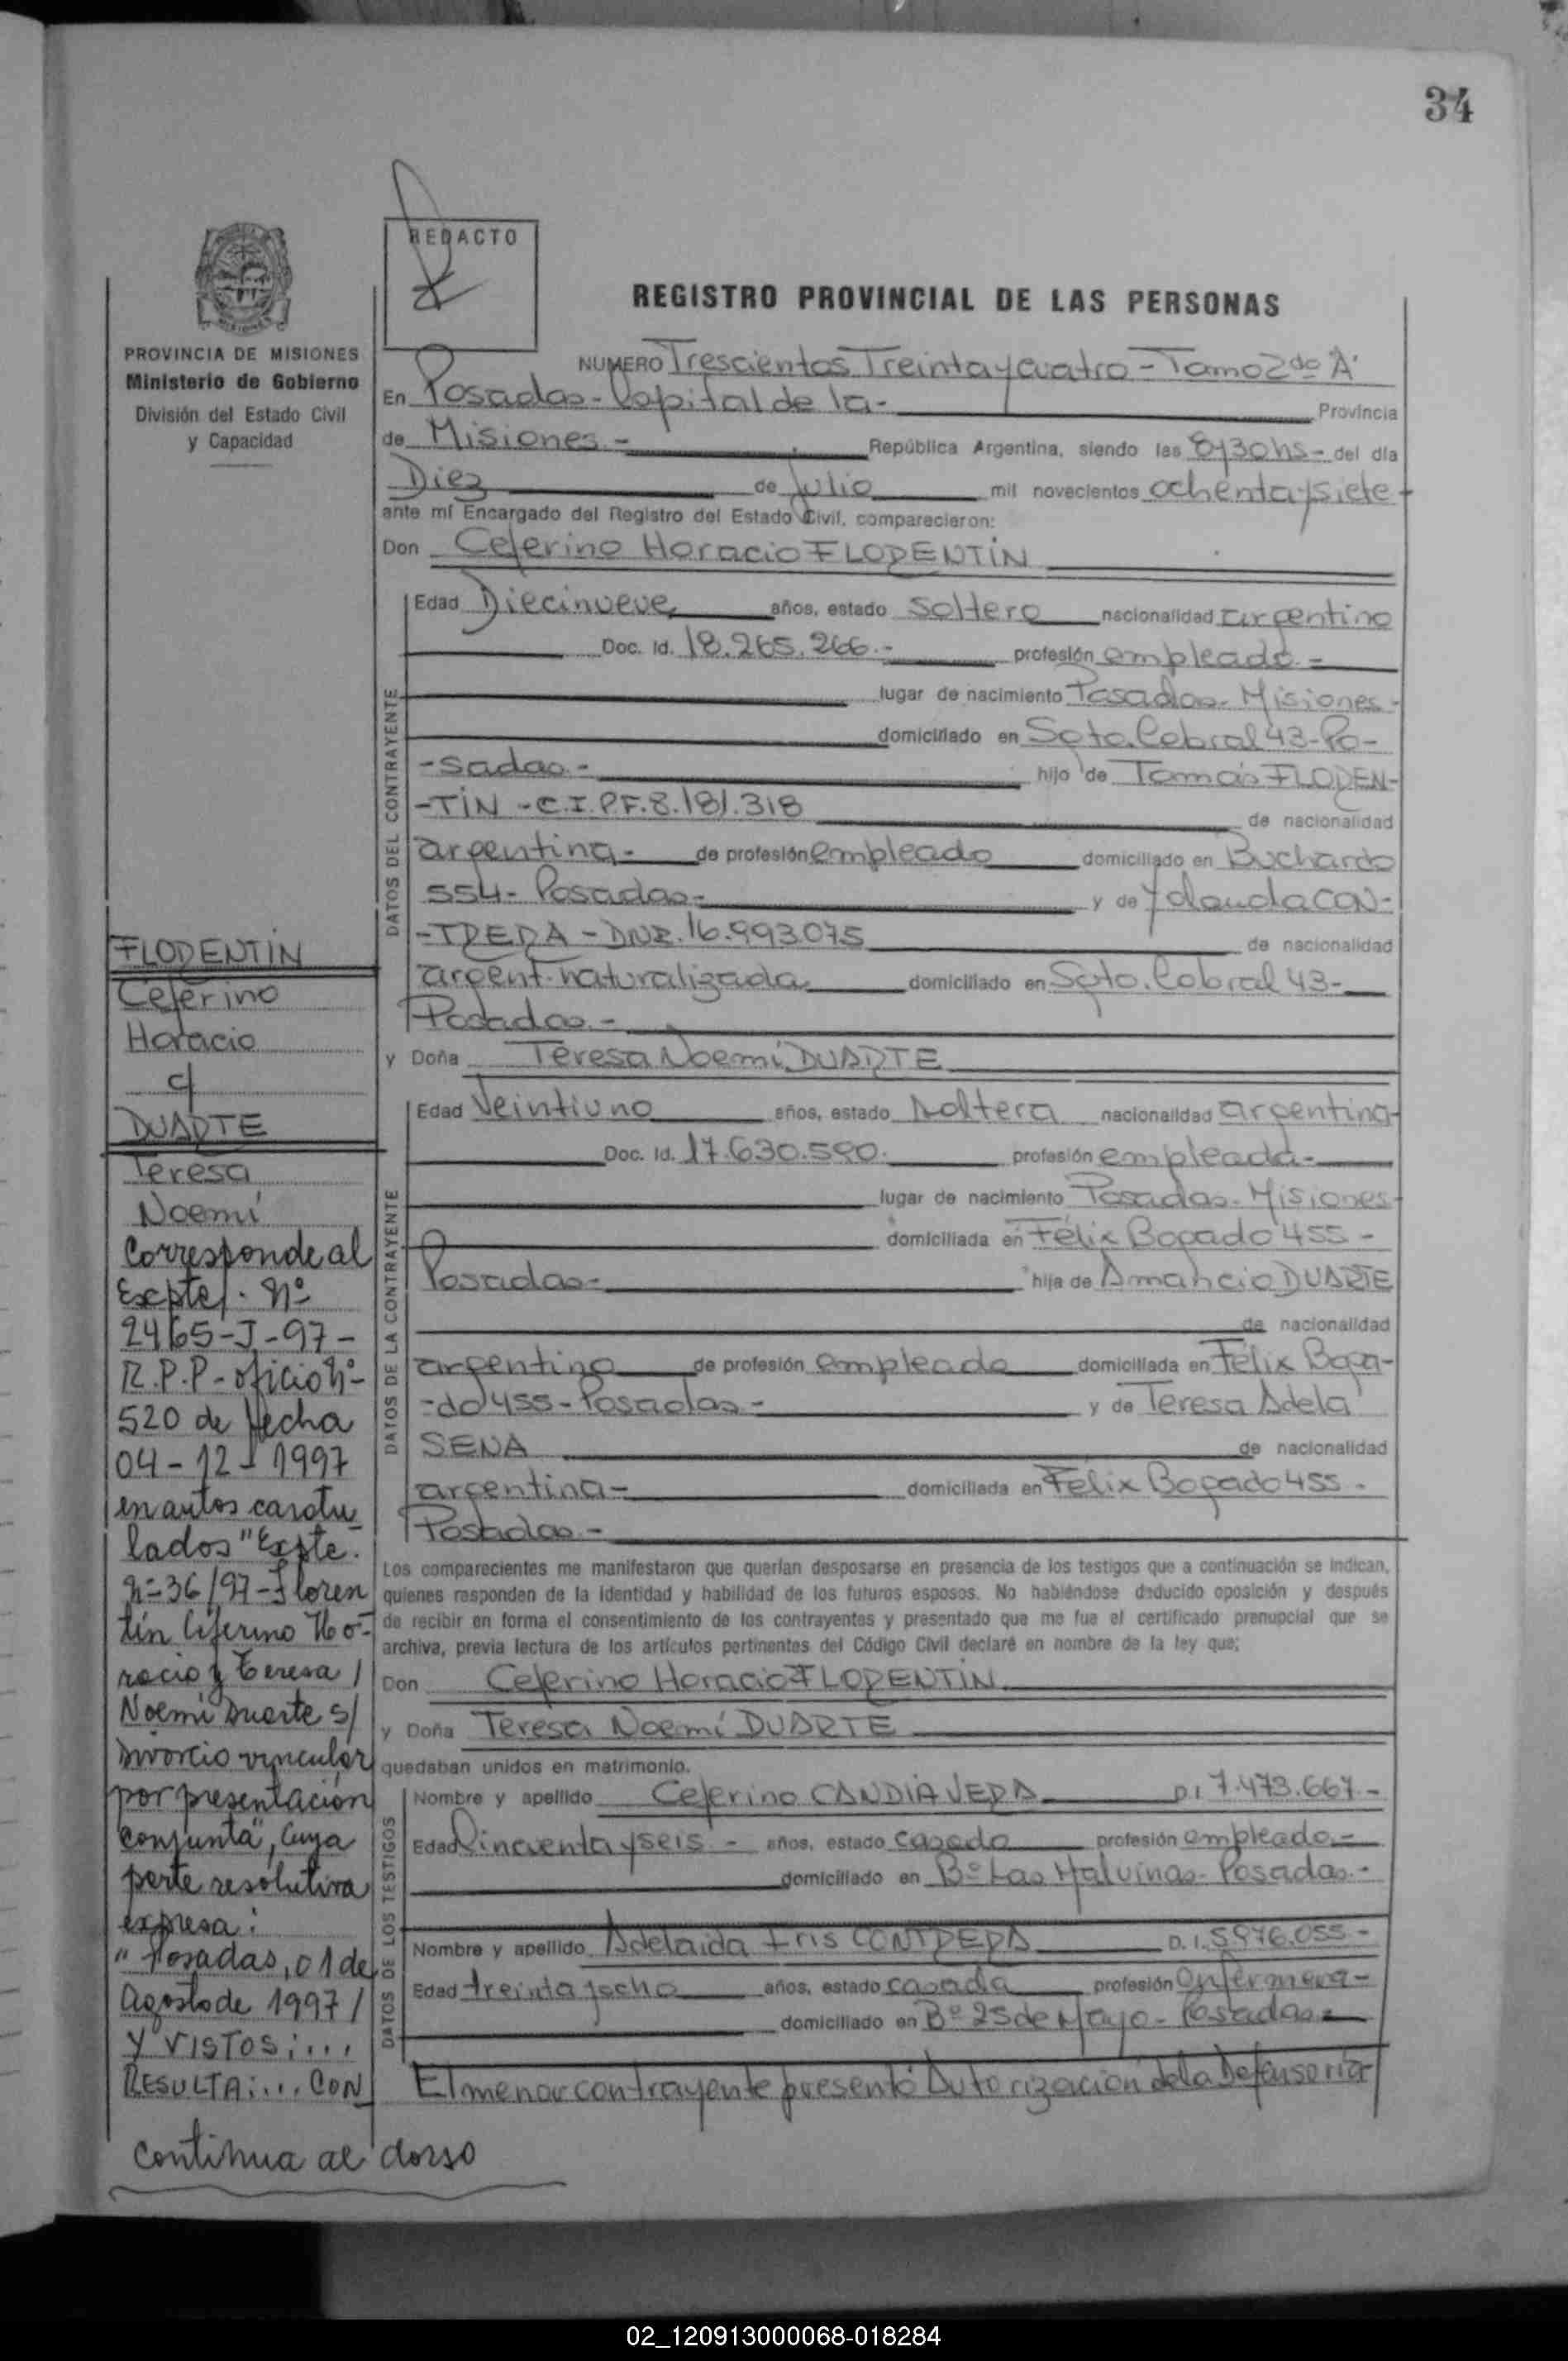 34
REDACTO
REGISTRO PROVINCIAL DE LAS PERSONAS
PROVINCIA DE MISIONES
Ministerio de Gobierno
División del Estado Civil
y Capacidad
NUMERO Trescientos Treinta y cuatro - Tomo 2do "A"
En Posadas - Capital de la - Provincia
de Misiones - República Argentina, siendo las 8y30hs - del día
Diez de Julio mil novecientos ochenta y siete
ante mí Encargado del Registro del Estado Civil, comparecieron:
Don Ceferino Horacio FLORENTIN
Edad Diecinueve años, estado soltero nacionalidad argentino
Doc. Id. 18.265.266.- profesión empleado -
lugar de nacimiento Posadas - Misiones -
domiciliado en Sgto. Cabral 43 - Po-
-sadas - hijo de Tomás FLOREN-
-TIN - C.I.P.F. 8.181.318 de nacionalidad
argentina - de profesión empleado domiciliado en Buchardo
554 - Posadas - y de Yolanda CON-
-TRERA - DNI. 16.993.075 de nacionalidad
argent. naturalizada domiciliado en Sgto. Cabral 43 -
Posadas -
y Doña Teresa Noemí DUARTE
Edad Veintiuno años, estado soltera nacionalidad argentina -
Doc. Id. 17.630.590. profesión empleada -
lugar de nacimiento Posadas - Misiones
domiciliada en Félix Bogado 455 -
Posadas - hija de Amancio DUARTE
de nacionalidad
argentino de profesión empleado domiciliada en Félix Boga-
-do 455 - Posadas - y de Teresa Adela
SENA de nacionalidad
argentina - domiciliada en Félix Bogado 455 -
Posadas -
Los comparecientes me manifestaron que querían desposarse en presencia de los testigos que a continuación se indican,
quienes responden de la identidad y habilidad de los futuros esposos. No habiéndose deducido oposición y después
de recibir en forma el consentimiento de los contrayentes y presentado que me fue el certificado prenupcial que se
archiva, previa lectura de los artículos pertinentes del Código Civil declaré en nombre de la ley que;
Don Ceferino Horacio FLORENTIN
y Doña Teresa Noemí DUARTE
quedaban unidos en matrimonio.
Nombre y apellido Ceferino CANDIA VERA D.I 7.473.667 -
Edad Cincuenta y seis - años, estado casado profesión empleado -
domiciliado en Bº Las Malvinas - Posadas -
Nombre y apellido Adelaida Iris CONTRERA D.I. 5.976.055 -
Edad treinta y ocho años, estado casada profesión enfermera -
domiciliado en Bº 25 de Mayo - Posadas -
El menor contrayente presentó Autorización de la Defensoría
DATOS DEL CONTRAYENTE
DATOS DE LA CONTRAYENTE
DATOS DE LOS TESTIGOS
FLORENTIN
Ceferino
Horacio
c/
DUARTE
Teresa
Noemí
Corresponde al
Expte. Nº
2465-J-97-
R.P.P - oficio Nº
520 de fecha
04-12-1997
en autos carátu
lados "Expte.
Nº 36/97 - Floren
tín Ceferino Ho-
racio y Teresa
Noemí Duarte s/
Divorcio vincular
por presentación
conjunta", cuya
parte resolutiva
expresa:
" Posadas, 01 de
Agosto de 1997/
Y VISTOS:...
RESULTA:... CON
continua al dorso
02_120913000068-018284